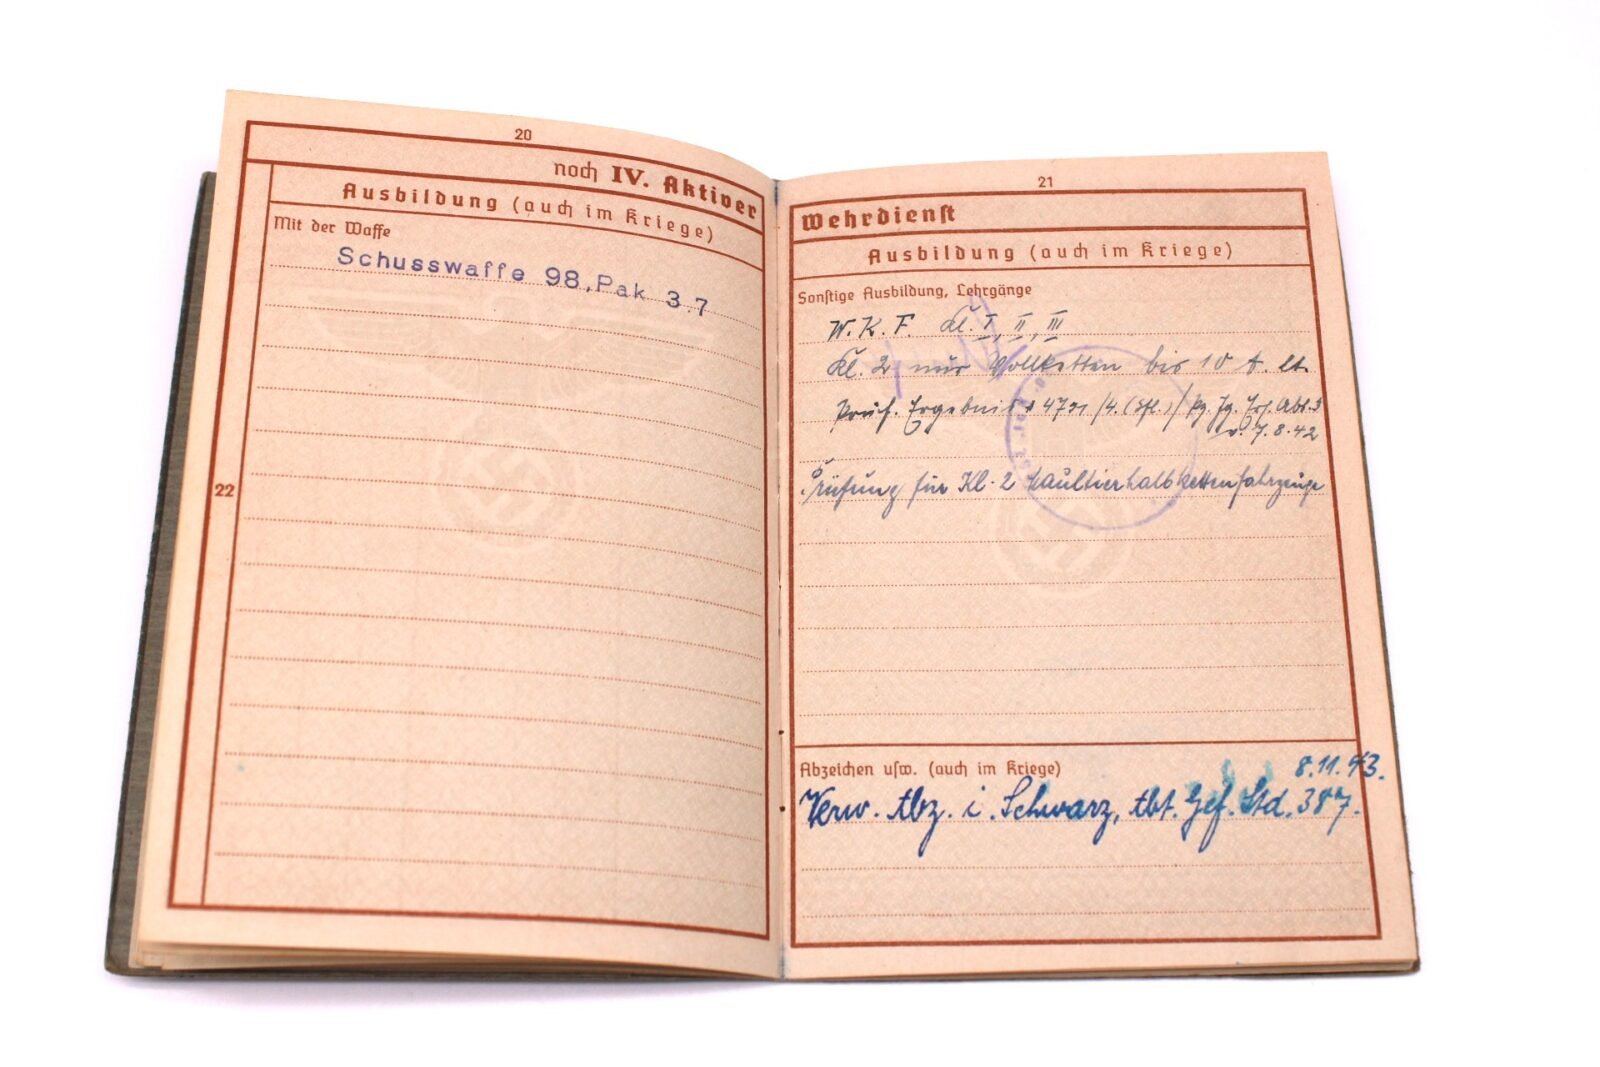 20
noch IV. Aktiver
Ausbildung (auch im Kriege)
Mit der Waffe
Schusswaffe 98, Pak 3.7
22
21
Wehrdienst
Ausbildung (auch im Kriege)
Sonstige Ausbildung, Lehrgänge
W.K.F Kl. I, II, III
Kl. 2 nur Vollketten bis 10 t. lt.
Prüf. Ergebnis
v. 7.8.42
Prüfung für Kl. 2 Maultierhalbkettenfahrzeuge
Abzeichen usw. (auch im Kriege)
8.11.43.
Verw. Abz. i. Schwarz, Abt. Gef. Std. 387.